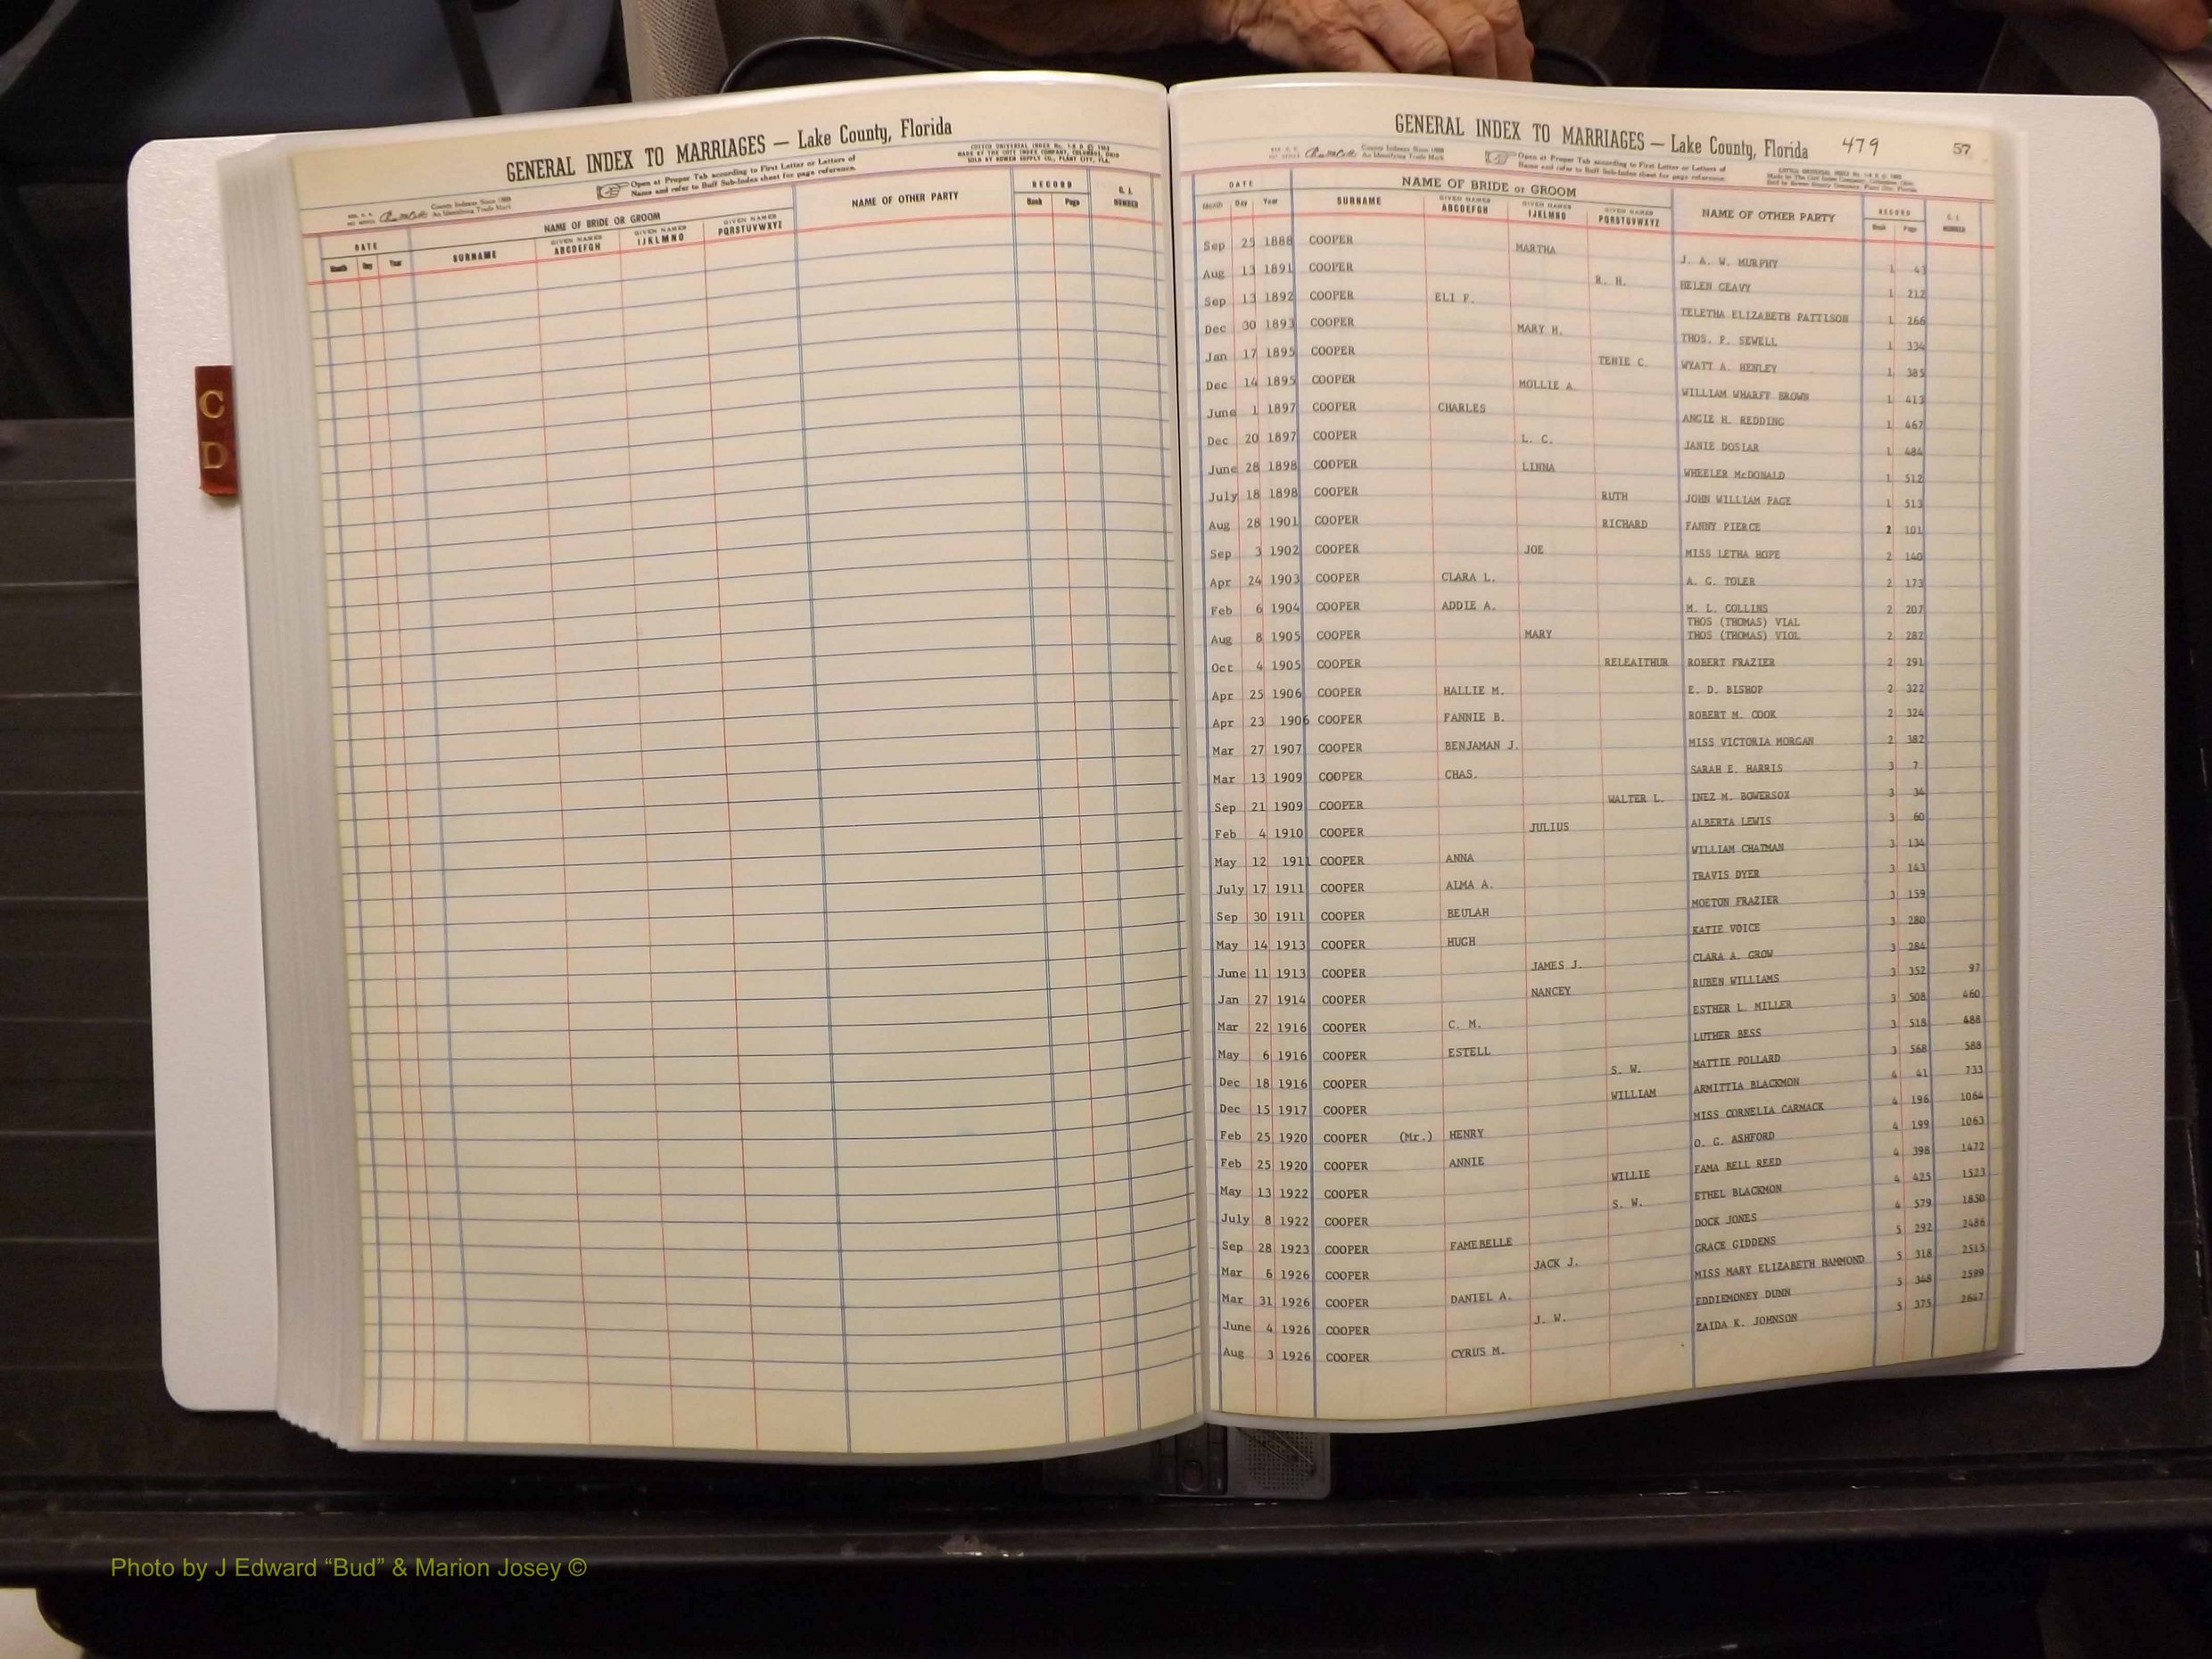 GENERAL INDEX TO MARRIAGES — Lake County, Florida
Open at Proper Tab according to First Letter or Letters of
Name and refer to Buff Sub-Index sheet for page reference.
County Indexes Since 1888
An Identifying Trade Mark
DATE
Month Day Year
SURNAME
NAME OF BRIDE OR GROOM
GIVEN NAMES ABCDEFGH
GIVEN NAMES IJKLMNO
GIVEN NAMES PQRSTUVWXYZ
NAME OF OTHER PARTY
RECORD
Book Page
NUMBER
C
D
GENERAL INDEX TO MARRIAGES — Lake County, Florida 479 57
County Indexes Since 1888
An Identifying Trade Mark
Open at Proper Tab according to First Letter or Letters of
Name and refer to Buff Sub-Index sheet for page reference.
DATE
Month Day Year
NAME OF BRIDE or GROOM
SURNAME
GIVEN NAMES ABCDEFGH
GIVEN NAMES IJKLMNO
GIVEN NAMES PQRSTUVWXYZ
NAME OF OTHER PARTY
RECORD
Book Page
NUMBER
Sep 25 1888 COOPER MARTHA J. A. W. MURPHY 1 43
Aug 13 1891 COOPER R. H. HELEN GEAVY 1 212
Sep 13 1892 COOPER ELI F. TELETHA ELIZABETH PATTISON 1 266
Dec 30 1893 COOPER MARY H. THOS. P. SEWELL 1 334
Jan 17 1895 COOPER TENIE C. WYATT A. HENLEY 1 385
Dec 14 1895 COOPER MOLLIE A. WILLIAM WHARFF BROWN 1 413
June 1 1897 COOPER CHARLES ANGIE H. REDDING 1 467
Dec 20 1897 COOPER L. C. JANIE DOSIAR 1 484
June 28 1898 COOPER LINNA WHEELER McDONALD 1 512
July 18 1898 COOPER RUTH JOHN WILLIAM PAGE 1 513
Aug 28 1901 COOPER RICHARD FANNY PIERCE 2 101
Sep 3 1902 COOPER JOE MISS LETHA HOPE 2 140
Apr 24 1903 COOPER CLARA L. A. G. TOLER 2 173
Feb 6 1904 COOPER ADDIE A. M. L. COLLINS 2 207
THOS (THOMAS) VIAL
Aug 8 1905 COOPER MARY THOS (THOMAS) VIOL 2 282
Oct 4 1905 COOPER RELEAITHUR ROBERT FRAZIER 2 291
Apr 25 1906 COOPER HALLIE M. E. D. BISHOP 2 322
Apr 23 1906 COOPER FANNIE B. ROBERT M. COOK 2 324
Mar 27 1907 COOPER BENJAMAN J. MISS VICTORIA MORGAN 2 382
Mar 13 1909 COOPER CHAS. SARAH E. HARRIS 3 7
Sep 21 1909 COOPER WALTER L. INEZ M. BOWERSOX 3 34
Feb 4 1910 COOPER JULIUS ALBERTA LEWIS 3 60
May 12 1911 COOPER ANNA WILLIAM CHATMAN 3 134
July 17 1911 COOPER ALMA A. TRAVIS DYER 3 143
Sep 30 1911 COOPER BEULAH MOETON FRAZIER 3 159
May 14 1913 COOPER HUGH KATIE VOICE 3 280
June 11 1913 COOPER JAMES J. CLARA A. GROW 3 284
Jan 27 1914 COOPER NANCEY RUBEN WILLIAMS 3 352 97
Mar 22 1916 COOPER C. M. ESTHER L. MILLER 3 508 460
May 6 1916 COOPER ESTELL LUTHER BESS 3 518 488
Dec 18 1916 COOPER S. W. MATTIE POLLARD 3 568 588
Dec 15 1917 COOPER WILLIAM ARMITTIA BLACKMON 4 41 733
Feb 25 1920 COOPER (Mr.) HENRY MISS CORNELIA CARMACK 4 196 1064
Feb 25 1920 COOPER ANNIE O. G. ASHFORD 4 199 1063
May 13 1922 COOPER WILLIE FAMA BELL REED 4 398 1472
July 8 1922 COOPER S. W. ETHEL BLACKMON 4 425 1523
Sep 28 1923 COOPER FAMEBELLE DOCK JONES 4 579 1850
Mar 6 1926 COOPER JACK J. GRACE GIDDENS 5 292 2486
Mar 31 1926 COOPER DANIEL A. MISS MARY ELIZABETH HAMMOND 5 318 2515
June 4 1926 COOPER J. W. EDDIEMONEY DUNN 5 348 2599
Aug 3 1926 COOPER CYRUS M. ZAIDA K. JOHNSON 5 375 2647
Photo by J Edward “Bud” & Marion Josey ©